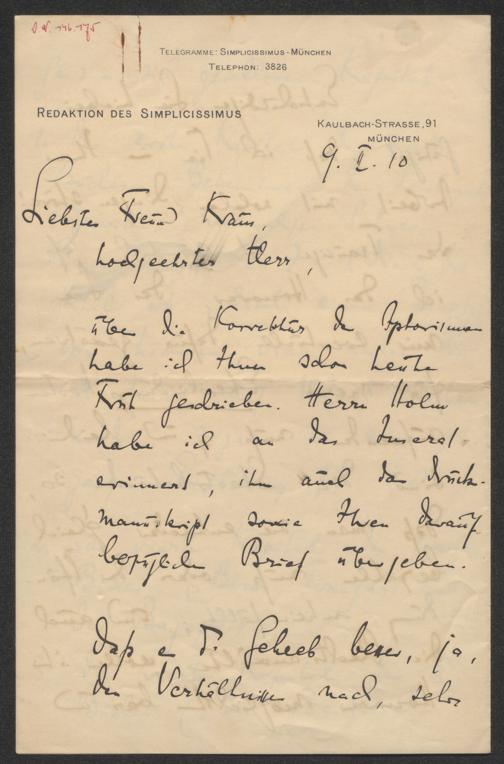 J.N. 146.175
TELEGRAMME: SIMPLICISSIMUS-MÜNCHEN
TELEPHON: 3826
REDAKTION DES SIMPLICISSIMUS
KAULBACH-STRASSE, 91
MÜNCHEN
9. I. 10
Liebster Freund Kraus,
hochgeehrter Herr,
über die Korrektur der Aphorismen
habe ich Ihnen schon heute
Früh geschrieben. Herrn Holm
habe ich an das Inserat
erinnert, ihm auch das Druck-
manuskript sowie Ihren darauf
bezüglichen Brief übergeben.
Daß es Dr. Geheeb besser, ja,
den Verhältnissen nach, sehr